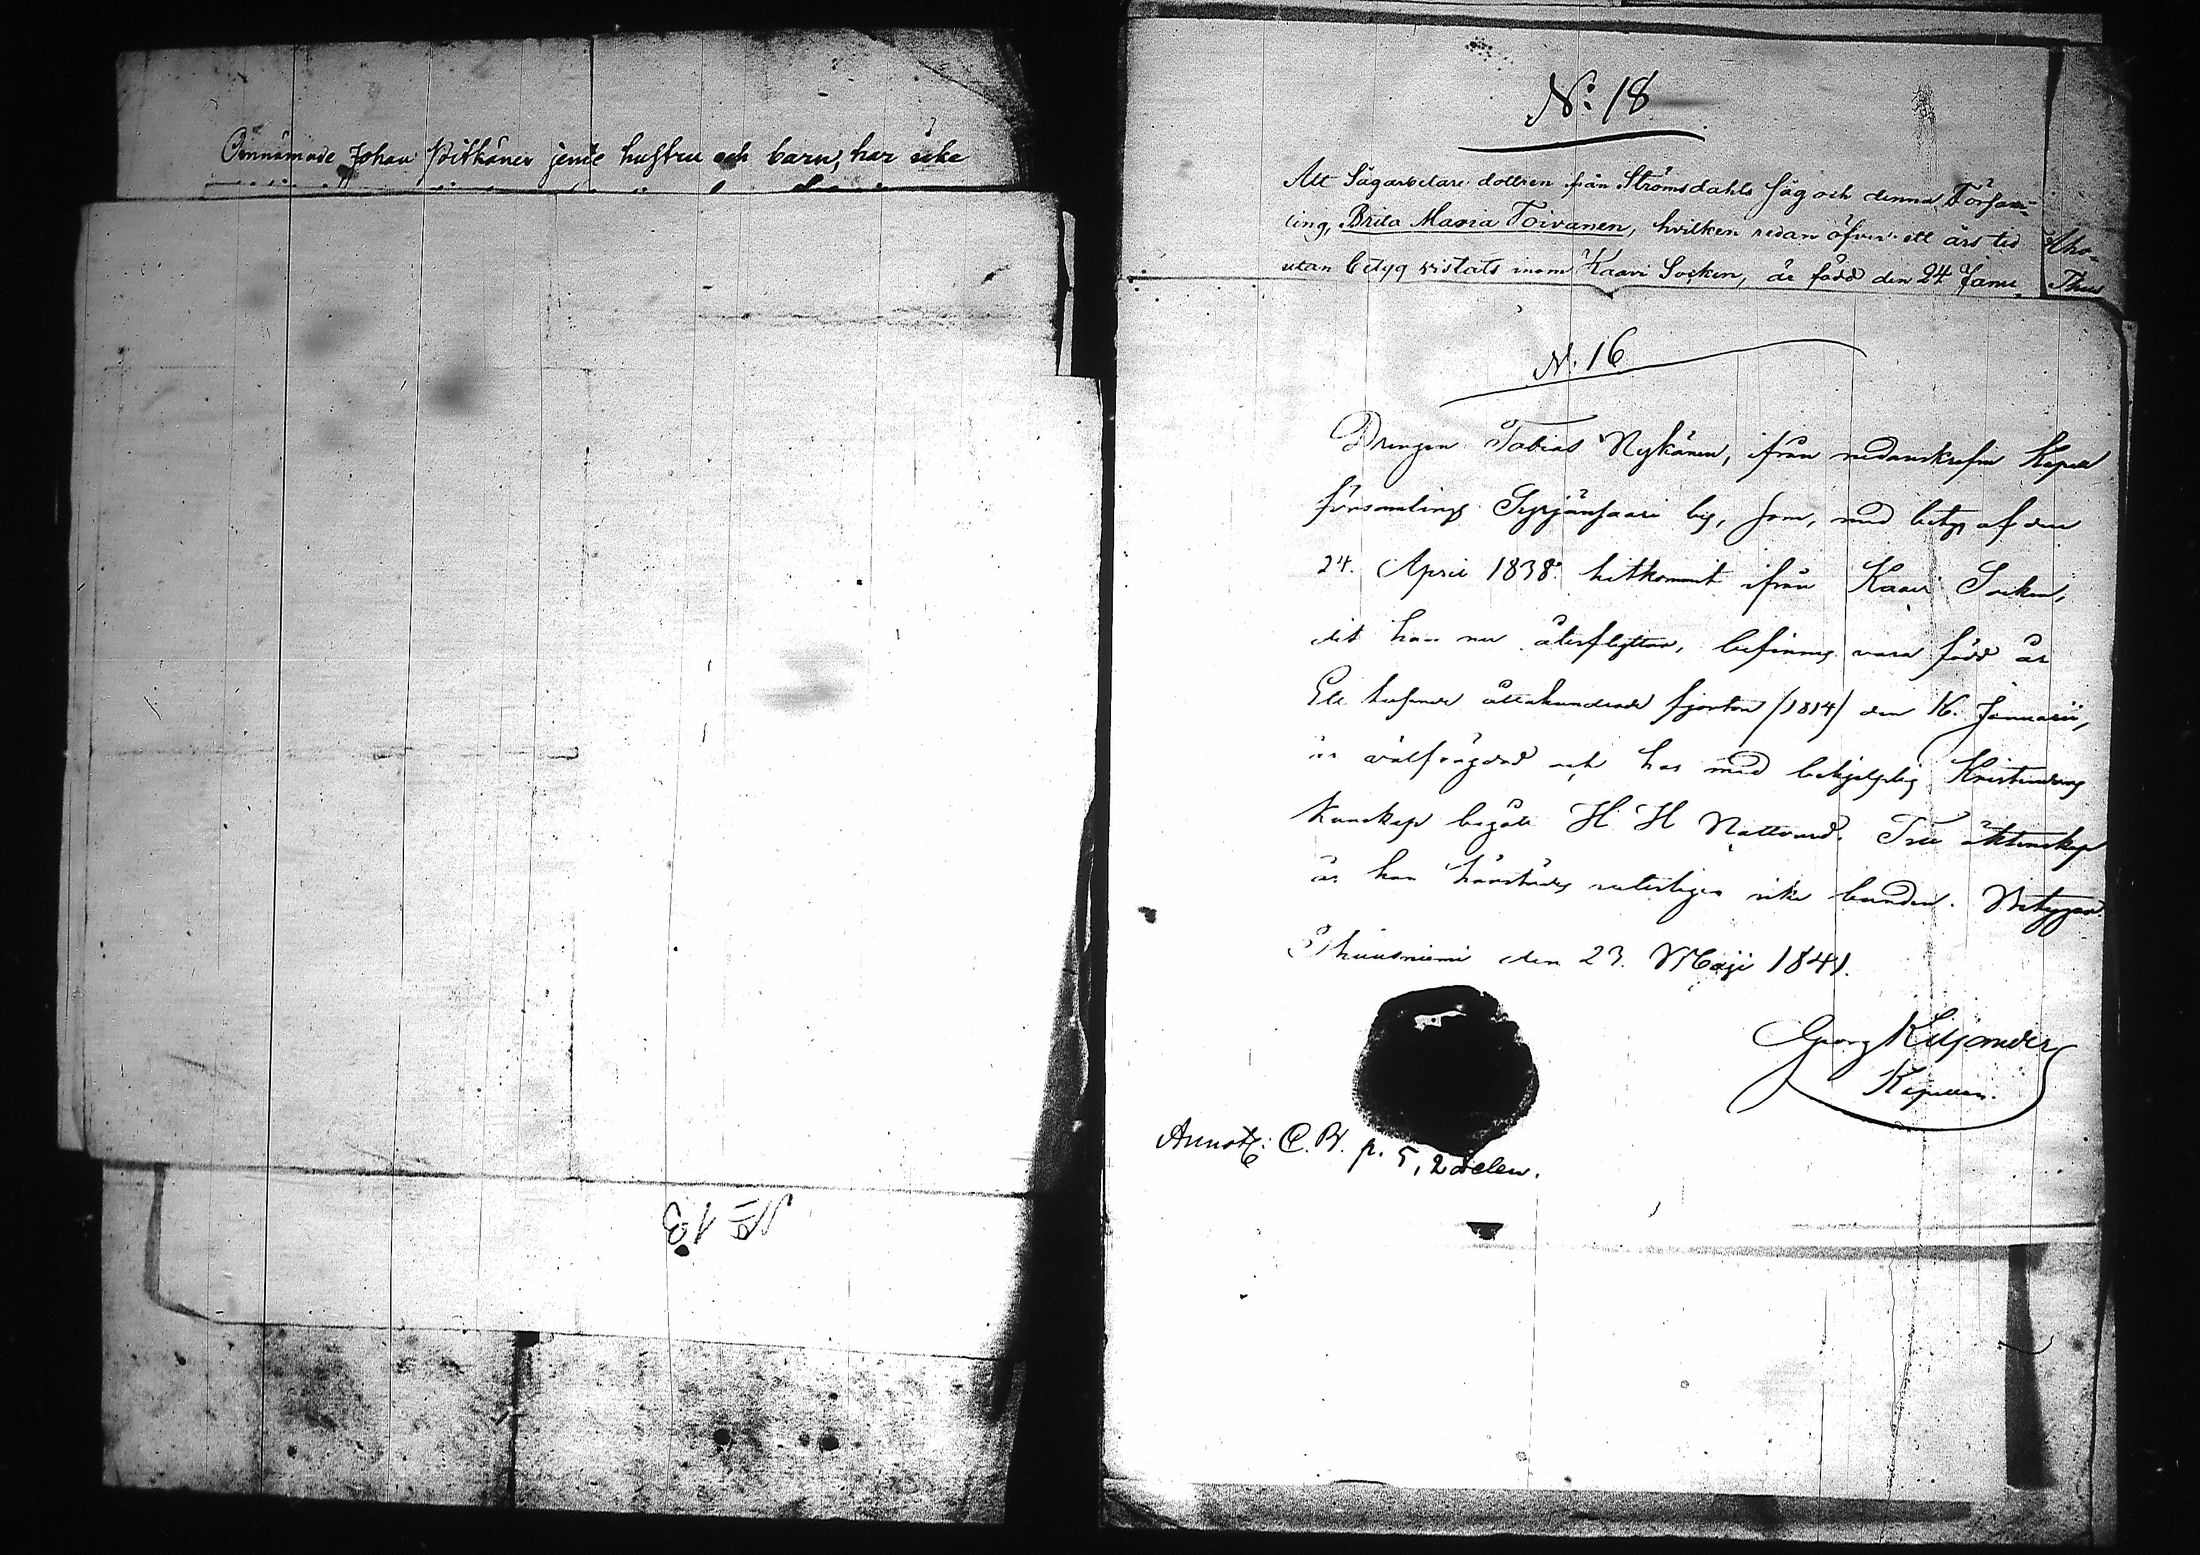 Omnämnde Johan Pitkänen jemte hustru och barn, har icke
№ 13
№ 18
Att Sågarbetare dottren från Strömsdahls Såg och denna Församl-
ling, Brita Maria Toivanen, hvilken redan öfver ett års tid
utan betyg vistats inom Kaavi Socken, är född den 24 Janu
N. 16
Drengen Tobias Nykänen, ifrån nedanskrefne Kapell
församlings Syrjänsaari by, som, med betyg af den
24. April 1838. hitkommit ifrån Kaavi Socken,
dit han nu återflyttar, befinnes vara född år
Ett tusende åttahundrade fjorton (1814) den 16. Januarii,
är välfrägdad och har med behjelplig Kristendoms
kunskap begått H H Nattvard. Till äktenskap
är han härstädes veterligen icke bunden. Betygar.
Thuusniemi den 23. Maji 1841.
Georg Kiljander
Kapellan.
Annot: C. B. p. 5, 2 delen.